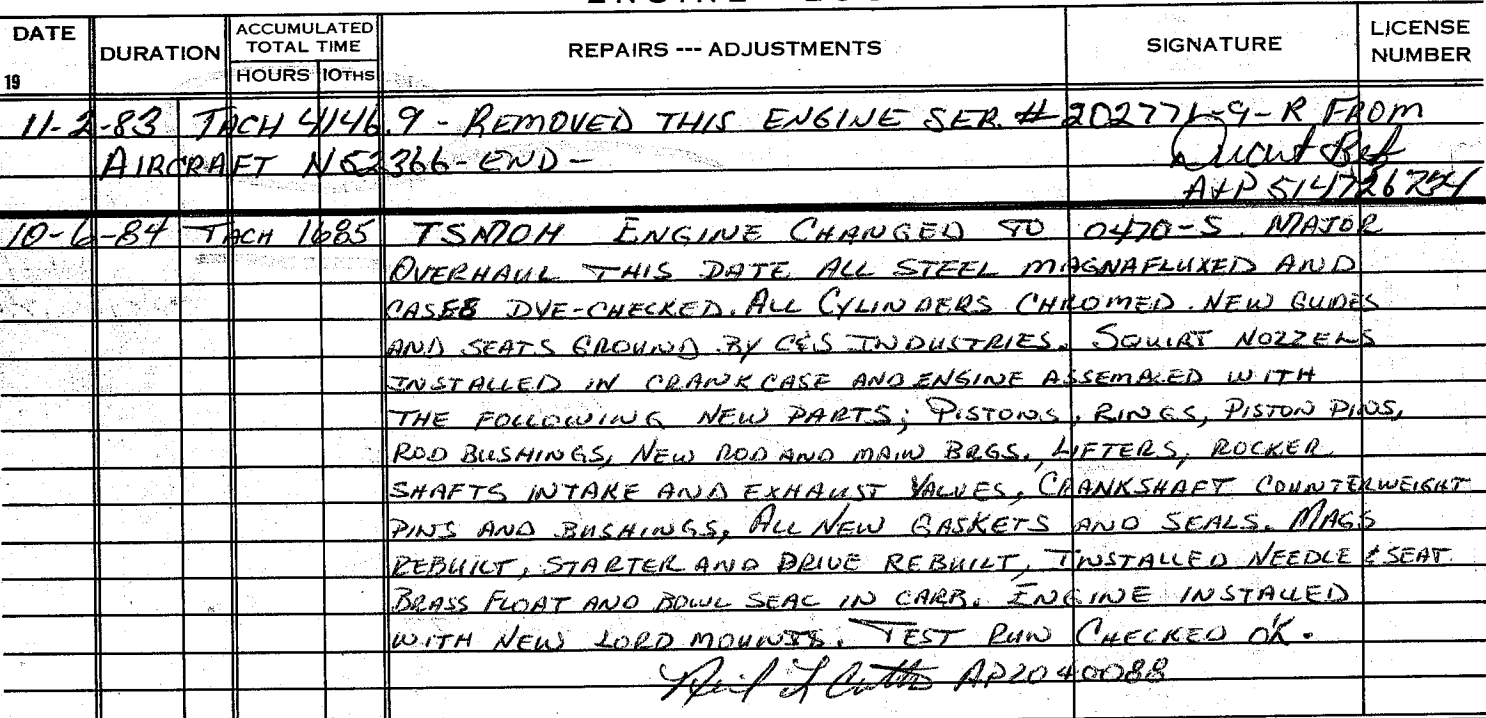 DATE
19
DURATION
ACCUMULATED
TOTAL TIME
HOURS 10THS
REPAIRS --- ADJUSTMENTS
SIGNATURE
LICENSE
NUMBER
11-2-83 TACH 4146.9 - REMOVED THIS ENGINE SER. # 202771-9-R FROM
AIRCRAFT N52366 - END -
A+P 514726754
10-6-84 TACH 1685 TSMOH ENGINE CHANGED TO 0470-S. MAJOR
OVERHAUL THIS DATE ALL STEEL MAGNAFLUXED AND
CASES DYE-CHECKED. ALL CYLINDERS CHROMED. NEW GUIDES
AND SEATS GROUND BY C&S INDUSTRIES. SQUIRT NOZZELS
INSTALLED IN CRANKCASE AND ENGINE ASSEMALED WITH
THE FOLLOWING NEW PARTS; PISTONS, RINGS, PISTON PINS,
ROD BUSHINGS, NEW ROD AND MAIN BRGS., LIFTERS, ROCKER
SHAFTS INTAKE AND EXHAUST VALVES, CRANKSHAFT COUNTERWEIGHT
PINS AND BUSHINGS, ALL NEW GASKETS AND SEALS. MAGS
REBUILT, STARTER AND DRIVE REBUILT, INSTALLED NEEDLE & SEAT
BRASS FLOAT AND BOWL SEAL IN CARB. ENGINE INSTALLED
WITH NEW LORD MOUNTS. TEST RUN CHECKED OK.
AP2040088